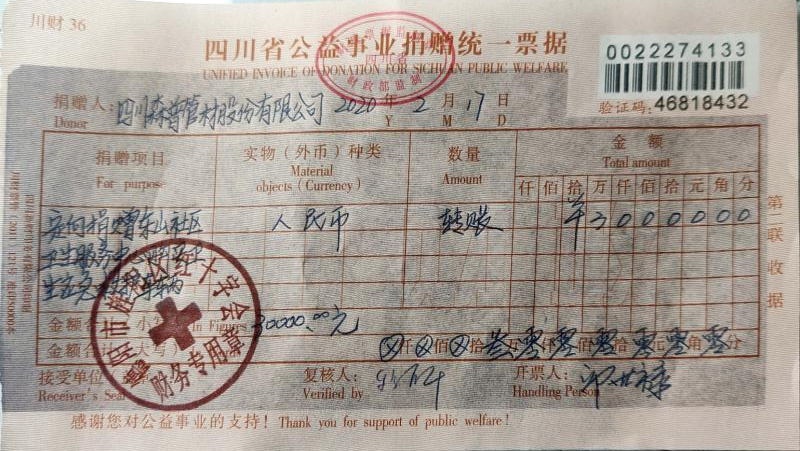 川财 36
四川省公益事业捐赠统一票据
UNIFIED INVOICE OF DONATION FOR SICHUAN PUBLIC WELFARE
四川省
财政部监制
0022274133
验证码: 46818432
捐赠人: 四川森普管材股份有限公司 2020 年 2 月 17 日
Donor Y M D
捐赠项目 实物（外币）种类 数量 金额
For purpose Material Amount Total amount
objects (Currency) 仟 佰 拾 万 仟 佰 拾 元 角 分
定向捐赠东山社区 人民币 转账 ¥ 3 0 0 0 0 0 0
卫生服务中心
金额 小写 In Figures 30000.00元
大写 ⊗仟⊗佰⊗拾叁万零仟零佰零拾零元零角零分
接受单位 复核人: 开票人:
Receiver's Seal Verified by Handling Person
红十字会
财务专用章
第二联 收据
感谢您对公益事业的支持! Thank you for support of public welfare!